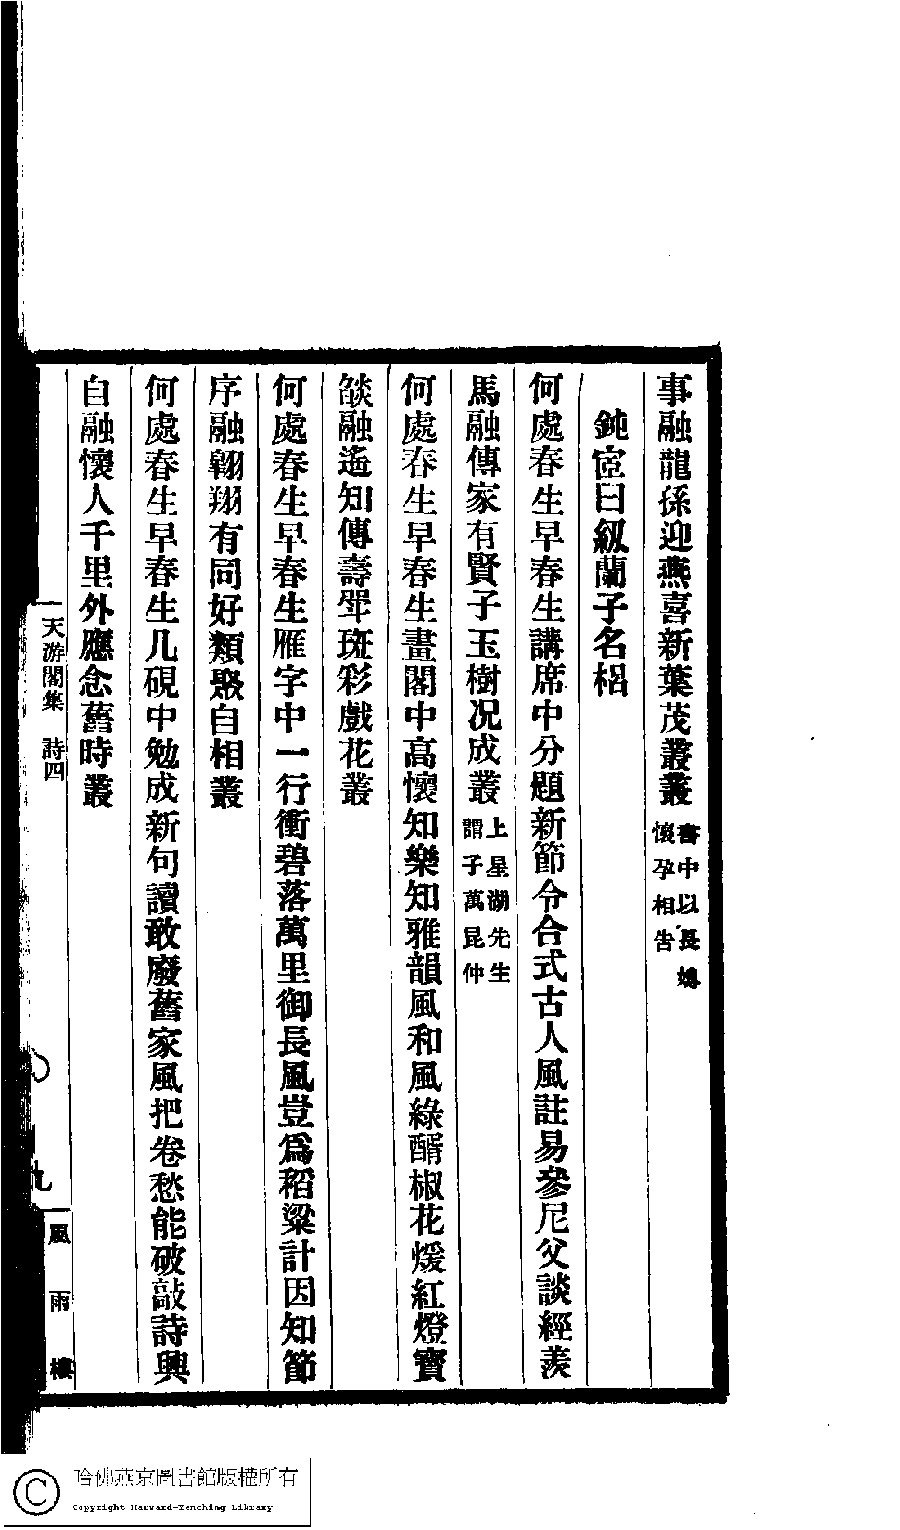 事融龍孫迎燕喜新葉茂叢叢書中以長媳
懷孕相告
鈍宧曰級蘭子名梠
何處春生早春生講席中分題新節令合式古人風註易參尼父談經羨
馬融傳家有賢子玉樹况成叢上星湖先生
謂子萬昆仲
何處春生早春生畫閣中高懷知樂知雅韻風和風綠醑椒花煖紅燈寶
燄融遙知傳壽斝斑彩戲花叢
何處春生早春生雁字中一行衝碧落萬里御長風豈爲稻粱計因知節
序融翱翔有同好類聚自相叢
何處春生早春生几硯中勉成新句讀敢廢舊家風把卷愁能破敲詩興
自融懷人千里外應念舊時叢
天游閣集 詩四
九
風雨樓
哈佛燕京圖書館版權所有
Copyright Harvard-Yenching Library